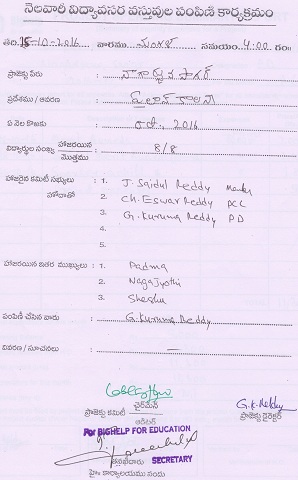 నెలవారీ విద్యావసర వస్తువుల పంపిణీ కార్యక్రమం
తేది. 15-10-2016 వారము మంగళ సమయం 4.00 గం॥
ప్రాజెక్టు పేరు నాగార్జున సాగర్
ప్రదేశము / ఆవరణ కాలని
ఏ నెల కొఱకు 2016
విద్యార్థుల సంఖ్య హాజరయిన / మొత్తము 8/8
హాజరైన కమిటీ సభ్యులు : 1. J. Saidul Reddy
హోదాతో 2. Ch. Eswar Reddy PCC
3. G. Kuruma Reddy PD
4.
5.
హాజరయిన ఇతర ముఖ్యులు : 1. Padma
2. Naga Jyothi
3. Sheshu
పంపిణీ చేసిన వారు : G. Kuruma Reddy
వివరణ / సూచనలు : —
G.K. Reddy
ప్రాజెక్టు కమిటీ ఛైర్మన్ ప్రాజెక్టు డైరెక్టర్
ఆడిటర్
For BIGHELP FOR EDUCATION
SECRETARY
హై కార్యాలయము నందు